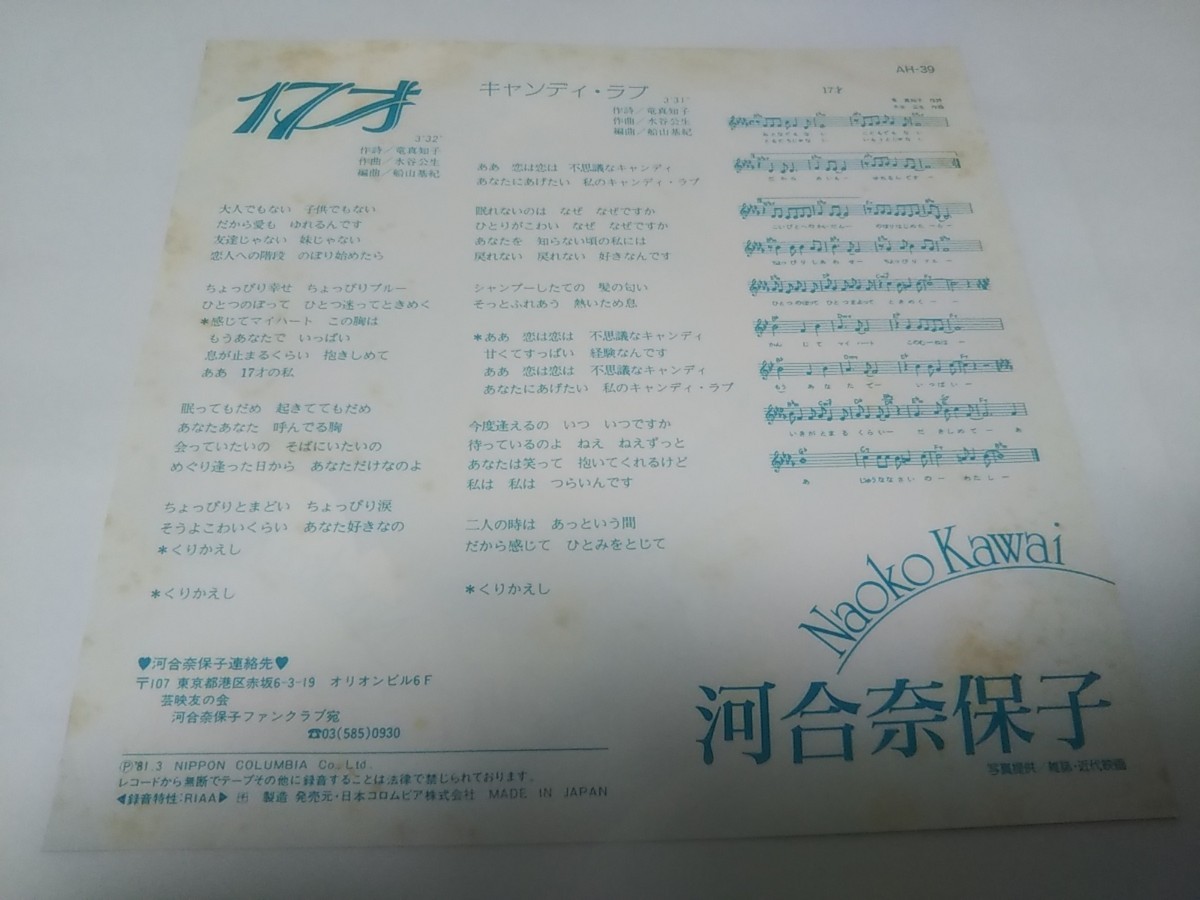 17才
3'32"
作詩/竜真知子
作曲/水谷公生
編曲/船山基紀
大人でもない 子供でもない
だから愛も ゆれるんです
友達じゃない 妹じゃない
恋人への階段 のぼり始めたら
ちょっぴり幸せ ちょっぴりブルー
ひとつのぼって ひとつ迷ってときめく
*感じてマイハート この胸は
もうあなたで いっぱい
息が止まるくらい 抱きしめて
ああ 17才の私
眠ってもだめ 起きててもだめ
あなたあなた 呼んでる胸
会っていたいの そばにいたいの
めぐり逢った日から あなただけなのよ
ちょっぴりとまどい ちょっぴり涙
そうよこわいくらい あなた好きなの
*くりかえし
*くりかえし
キャンディ・ラブ
3'31"
作詩/竜真知子
作曲/水谷公生
編曲/船山基紀
ああ 恋は恋は 不思議なキャンディ
あなたにあげたい 私のキャンディ・ラブ
眠れないのは なぜ なぜですか
ひとりがこわい なぜ なぜですか
あなたを 知らない頃の私には
戻れない 戻れない 好きなんです
シャンプーしたての 髪の匂い
そっとふれあう 熱いため息
*ああ 恋は恋は 不思議なキャンディ
甘くてすっぱい 経験なんです
ああ 恋は恋は 不思議なキャンディ
あなたにあげたい 私のキャンディ・ラブ
今度逢えるの いつ いつですか
待っているのよ ねえ ねえずっと
あなたは笑って 抱いてくれるけど
私は 私は つらいんです
二人の時は あっという間
だから感じて ひとみをとじて
*くりかえし
AH-39
17才
ちょっぴりしあわせー ちょっぴりブルー
ひとつのぼって ひとつまよって ときめくー
かん じて マイ ハート このむーねは ー
もう あ な た で ー いっぱい ー
いきがとまる くらいー だ きしめてー あ
あ じゅうななさい の ー わたしー
Naoko Kawai
河合奈保子
写真提供/雑誌・近代映画
♥河合奈保子連絡先♥
〒107 東京都港区赤坂6-3-19 オリオンビル6F
芸映友の会
河合奈保子ファンクラブ宛
☎03(585)0930
Ⓟ'81.3 NIPPON COLUMBIA Co., Ltd.
レコードから無断でテープその他に録音することは法律で禁じられております。
◀録音特性:RIAA▶ 製造 発売元・日本コロムビア株式会社 MADE IN JAPAN